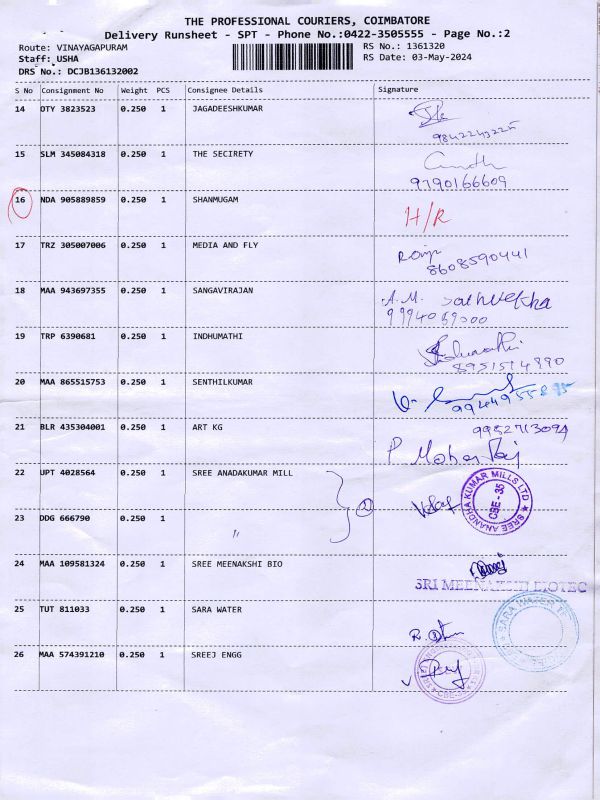 THE PROFESSIONAL COURIERS, COIMBATORE
Delivery Runsheet - SPT - Phone No.:0422-3505555 - Page No.:2
Route: VINAYAGAPURAM RS No.: 1361320
Staff: USHA RS Date: 03-May-2024
DRS No.: DCJB136132002
S No Consignment No Weight PCS Consignee Details Signature
14 OTY 3823523 0.250 1 JAGADEESHKUMAR
9842243225
15 SLM 345084318 0.250 1 THE SECIRETY
9790166609
16 NDA 905889859 0.250 1 SHANMUGAM H/R
17 TRZ 305007006 0.250 1 MEDIA AND FLY
8608590441
18 MAA 943697355 0.250 1 SANGAVIRAJAN A.M.
9994059000
19 TRP 6390681 0.250 1 INDHUMATHI
8951514890
20 MAA 865515753 0.250 1 SENTHILKUMAR
21 BLR 435304001 0.250 1 ART KG 9952713094
22 UPT 4028564 0.250 1 SREE ANADAKUMAR MILL
SREE ANANDHA KUMAR MILLS LTD CBE-35
23 DDG 666790 0.250 1 "
24 MAA 109581324 0.250 1 SREE MEENAKSHI BIO
SRI MEENAKSHI BIOTEC
25 TUT 811033 0.250 1 SARA WATER
SARA WATER
26 MAA 574391210 0.250 1 SREEJ ENGG